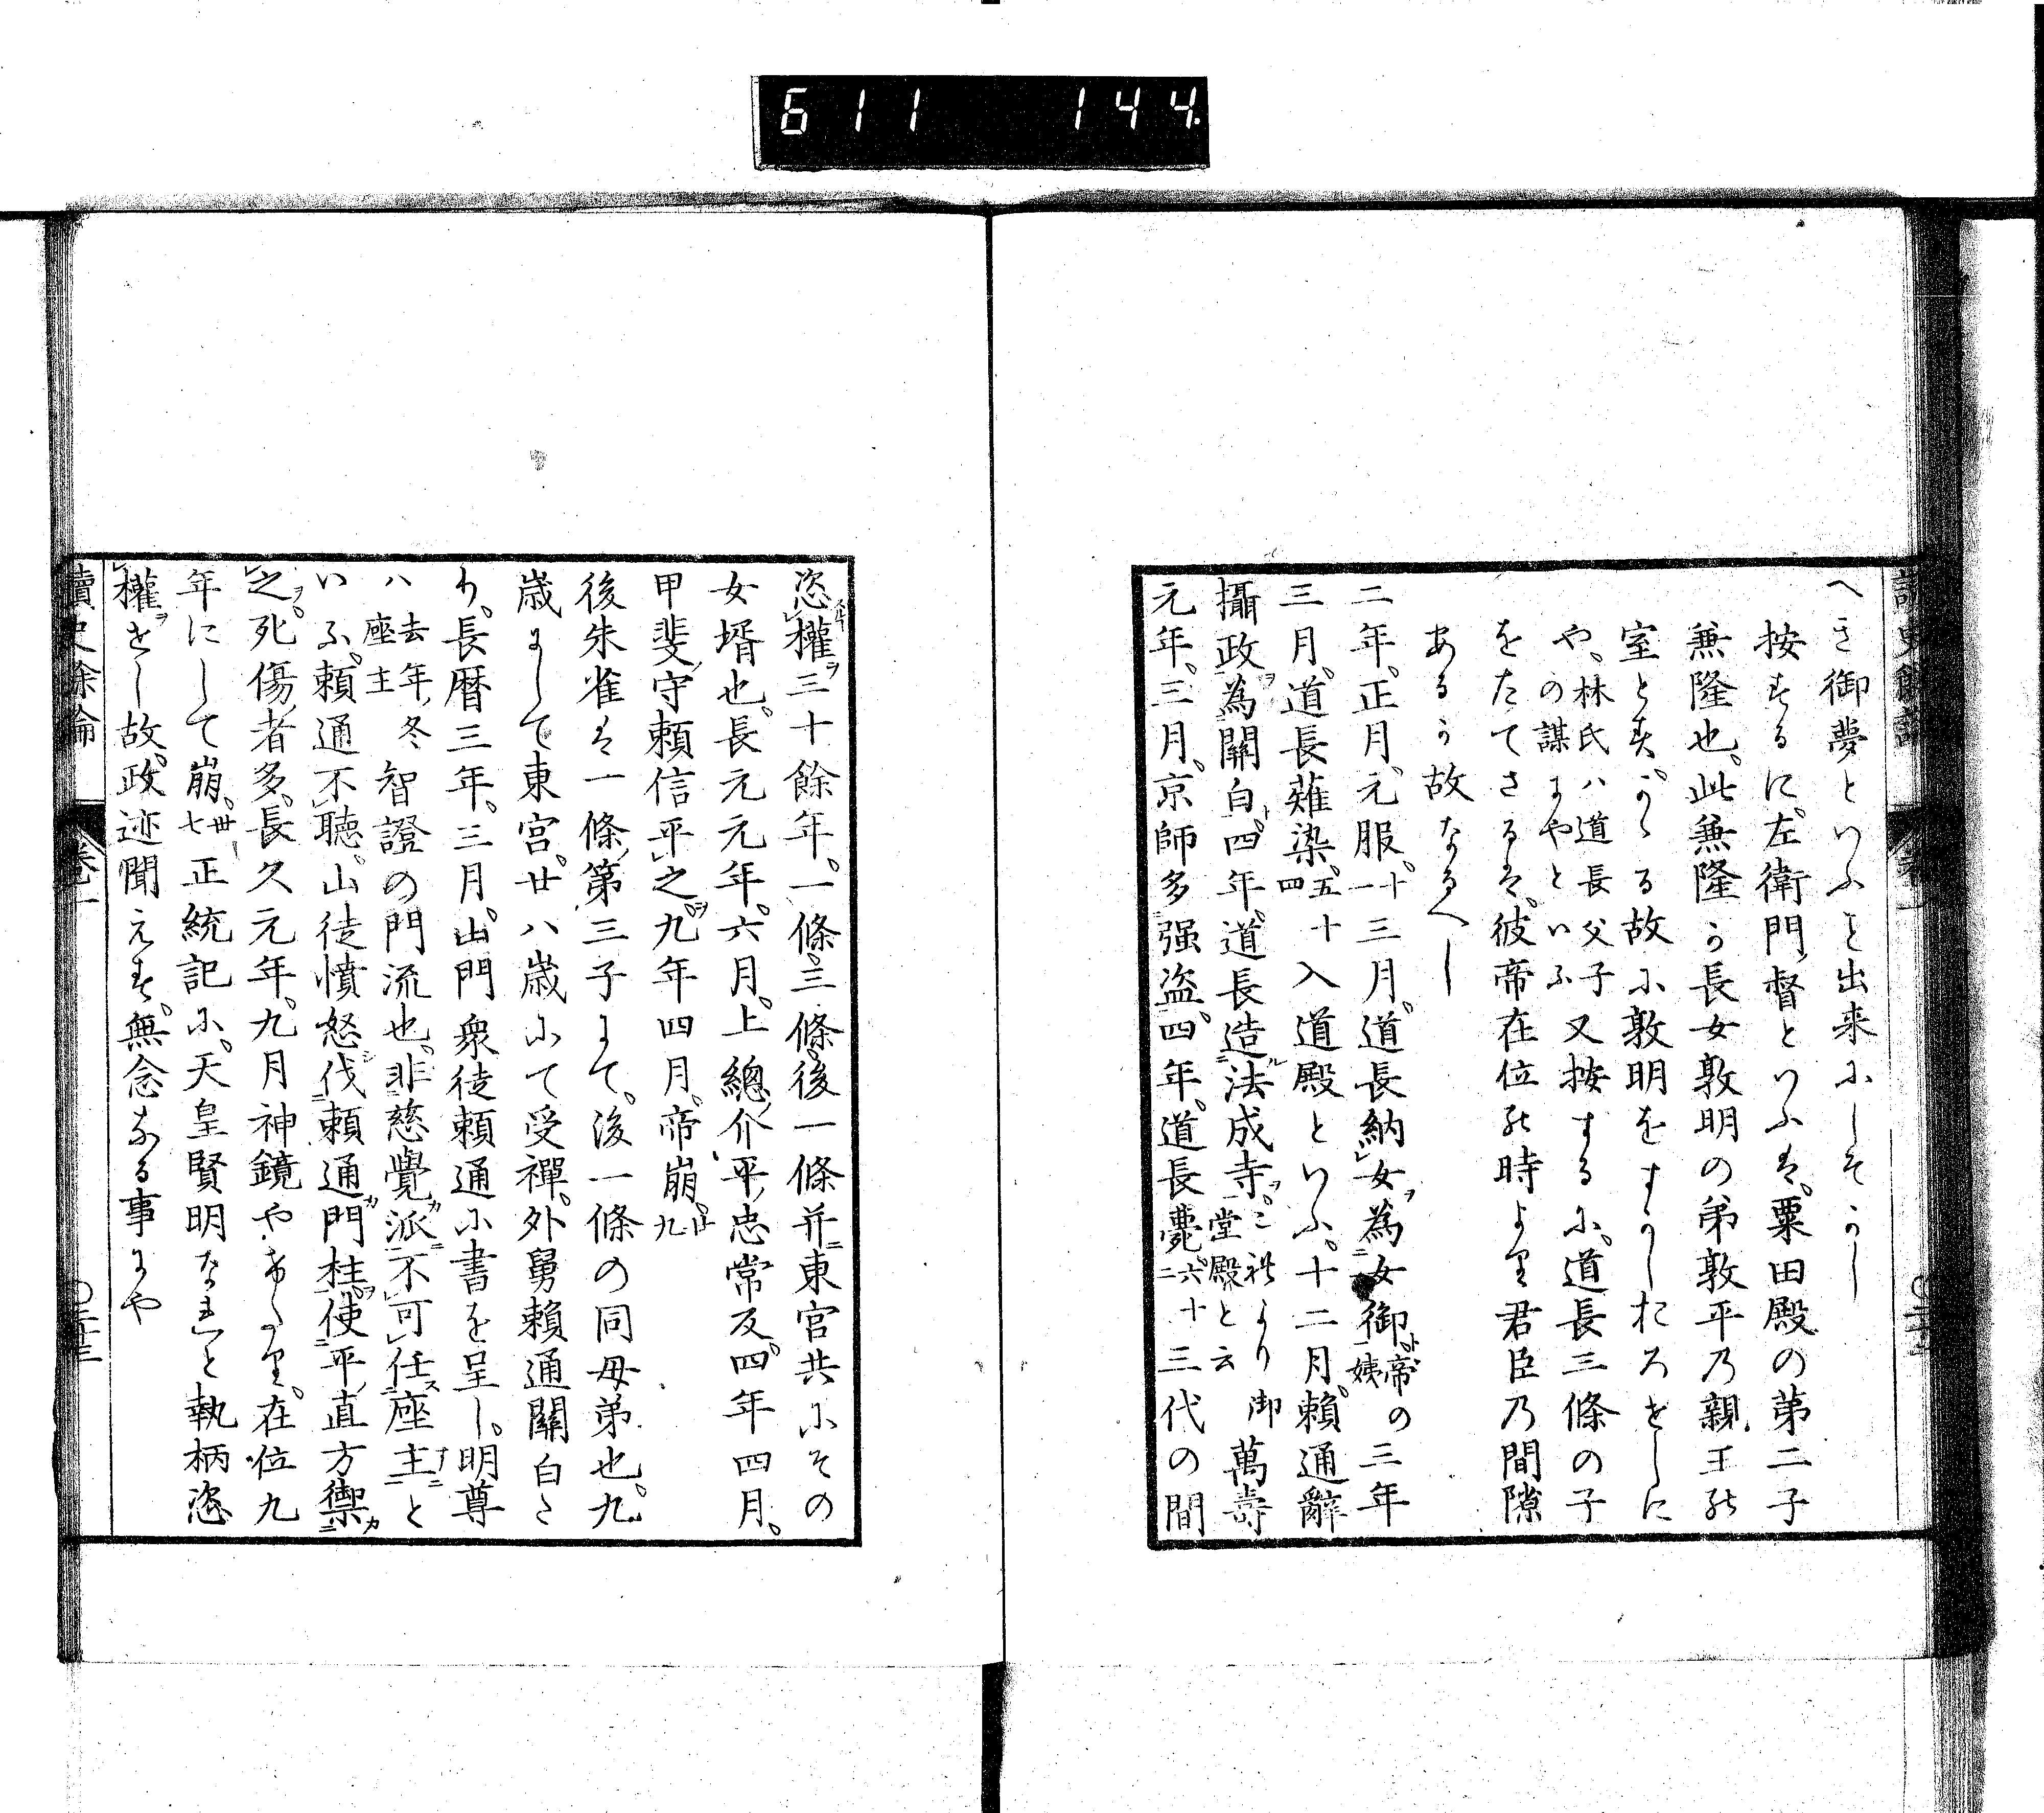 611 144
へき御夢といふも出来にしそかし
按するに左衛門督といふは粟田殿の第二子
兼隆也此兼隆か長女敦明の弟敦平乃親王の
室とすかゝる故に敦明をすかしおろせしに
や林氏ハ道長父子の謀にやといふ又按するに道長三條の子
をたてさるは彼帝在位の時より君臣乃間隙
あるか故なるへし
二年正月元服十一三月道長納女為女御帝の姨三年
三月道長薙染五十四入道殿といふ十二月頼通辭
攝政為關白四年道長造法成寺これより御堂殿と云萬壽
元年三月京師多强盗四年道長薨六十二三代の間
恣權三十餘年一條三條後一條并東宮共にその
女壻也長元元年六月上總介平忠常反四年四月
甲斐守頼信平之九年四月帝崩廿九
後朱雀は一條第三子にて後一條の同母弟也九
歳にして東宮廿八歳にて受禪外舅頼通關白た
り長暦三年三月山門衆徒頼通に書を呈し明尊
ハ去年冬座主智證の門流也非慈覺派不可任座主と
いふ頼通不聴山徒憤怒伐頼通門柱使平直方禦
之死傷者多長久元年九月神鏡やけたり在位九
年にして崩卅七正統記に天皇賢明なれと執柄恣
權せし故政迹聞えす無念なる事にや
讀史餘論 卷一